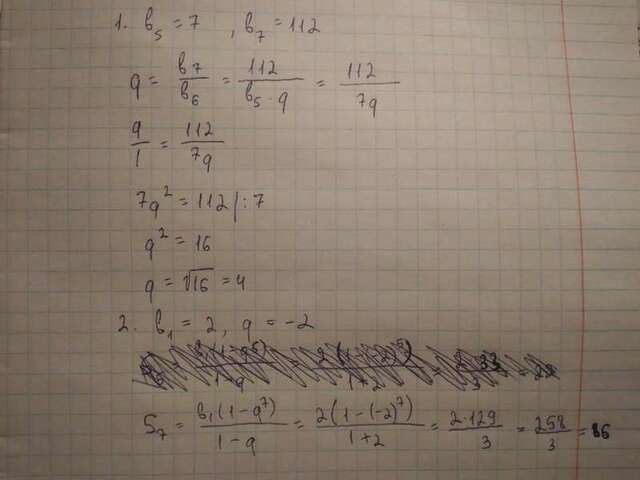 1. b₅ = 7 , b₇ = 112
q = b₇/b₆ = 112/(b₅·q) = 112/(7q)
q/1 = 112/(7q)
7q² = 112 |:7
q² = 16
q = √16 = 4
2. b₁ = 2, q = -2
S₇ = b₁(1-q⁷)/(1-q) = 2(1-(-2)⁷)/(1+2) = 2·129/3 = 258/3 = 86